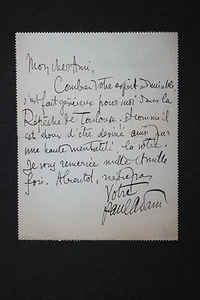 Mon cher Ami,
Combien votre esprit admirable
s'est fait généreux pour moi dans la
Dépêche de Toulouse. Et comme il
est doux d'être deviné ainsi par
une haute mentalité, la vôtre.
Je vous remercie mille & mille
fois. A bientôt, n'est-ce pas
Votre
Paul Adam